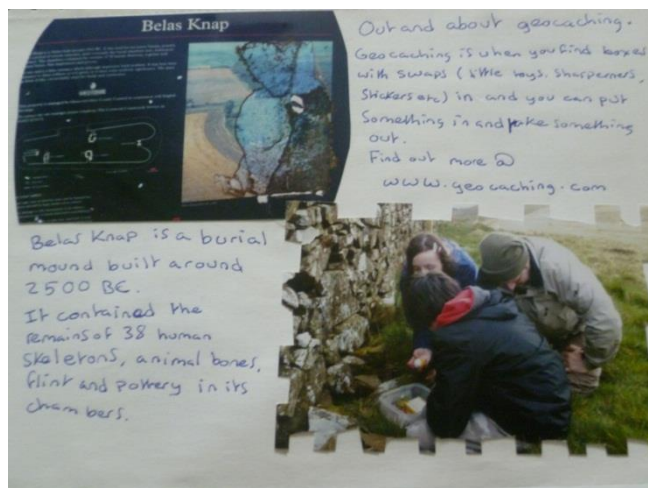 Belas Knap
Out and about geocaching.
Geocaching is when you find boxes
with swaps (little toys, sharpeners,
stickers etc) in and you can put
something in and take something
out.
Find out more @
www.geocaching.com
Belas Knap is a burial
mound built around
2500 BC.
It contained the
remains of 38 human
skeletons, animal bones,
flint and pottery in its
chambers.